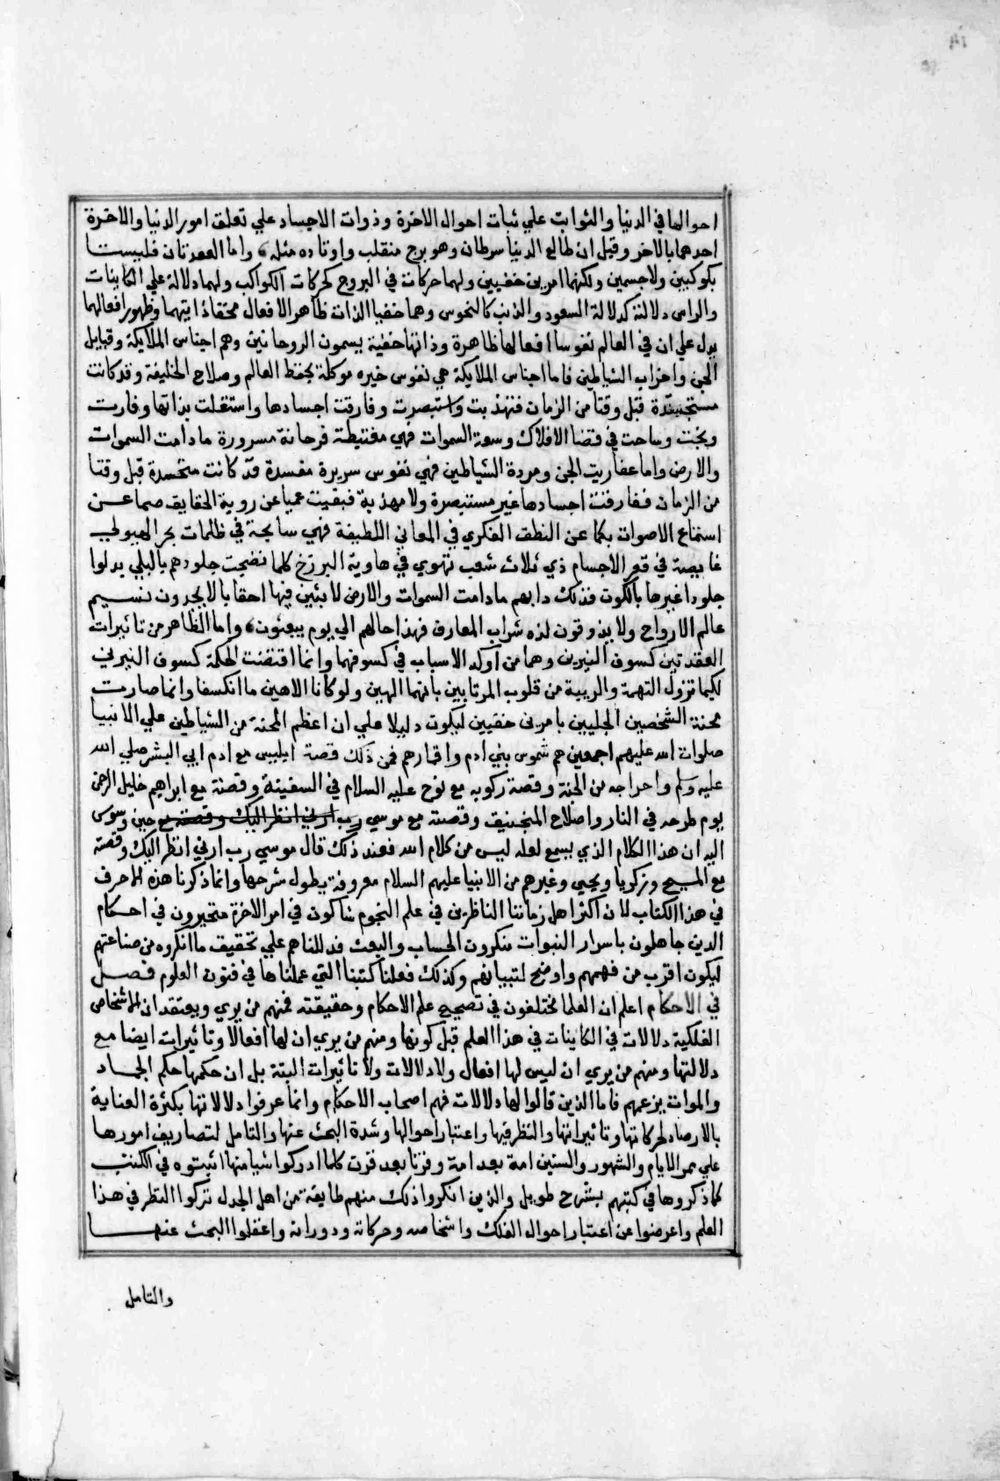 احوالها في الدنيا والثوابت علي ثبات احوال الاخرة وذوات الاجساد علي تعلق امور الدنيا والاخرة
احدهما بالاخر وقيل ان طالع الدنيا سرطان وهو برج منقلب واوتاده مثله واما العقدتان فليستا
بكوكبين ولا جسمين ولكنهما امرين خفيين ولهما حركات في البروج كحركات الكواكب ولهما دلالة علي الكاينات
والراس دلالته كدلالة السعود والذنب كالنحوس وهما خفيا الذات ظاهر الافعال فخفاء ذاتيهما وظهور افعالهما
يدل علي ان في العالم نفوسا افعالها ظاهرة وذاتها خفية يسمون الروحانين وهم اجناس الملايكة وقبايل
الجن واحزاب الشياطين فاما اجناس الملايكة هي نفوس خيره موكلة بحفظ العالم وصلاح الخليقة وقد كانت
متجسدة قبل وقتا من الزمان فتهذبت واستبصرت وفارقت اجسادها واستقلت بذاتها وفازت
ونجت وساحت في فضا الافلاك وسعة السموات فهي مغتبطة فرحانة مسرورة ما دامت السموات
والارض واما عفاريت الجن ومردة الشياطين فهي نفوس سريرة مفسدة قد كانت متجسدة قبل وقتا
من الزمان ففارقت اجسادها غير مستبصرة ولا مهذبة فبقيت عميا عن روية الحقايق صما عن
استماع الاصوات بكما عن النطق الفكري في المعاني اللطيفة فهي سابحة في ظلمات بحر الهيولي
غايصة في قعر الاجسام ذي ثلاث شعب تهوي في هاوية البرزخ كلما نضجت جلودهم بالبلي بدلوا
جلودا غيرها بالكون فذلك دابهم ما دامت السموات والارض لابثين فيها احقابا لا يجدون نسيم
عالم الارواح ولا يذوقون لذه شراب المعارف فهذا حالهم الي يوم يبعثون واما الظاهر من تاثيرات
العقدتين كسوف النيرين وهما من اوكد الاسباب في كسوفهما وانما اقتضت الحكمة كسوف النيرين
لكيما تزول التهمة والريبة من قلوب المرتابين بانهما الهين ولو كانا الاهين ما انكسفا وانما صارت
محنة الشخصين الجليين بامرين خفيين ليكون دليلا علي ان اعظم المحنة من الشياطين علي الانبيا
صلوات الله عليهم اجمعين هم شموس بني ادم واقمارهم فمن ذلك قصة ابليس مع ادم ابي البشر صلي الله
عليه وسلم واخراجه من الجنة وقصة ركوبه مع نوح عليه السلام في السفينة وقصته مع ابراهيم خليل الرحمن
يوم طرحه في النار واصلاح المنجنيق وقصته مع موسي رب ارني انظر اليك وقصته مع حين وسوس
اليه ان هذا الكلام الذي يسمع لعله ليس من كلام الله فعند ذلك قال موسي رب ارني انظر اليك وقصته
مع المسيح وزكريا ويحيي وغيرهم من الانبيا عليهم السلام معروفة يطول شرحها وانما ذكرنا هذه الاحرف
في هذا الكتاب لان اكثر اهل زماننا الناظرين في علم النجوم شاكون في امر الاخرة متحيرون في احكام
الدين جاهلون باسرار النبوات منكرون الحساب والبعث فدللناهم علي تحقيق ما انكروه من صناعتهم
ليكون اقرب من فهمهم واوضح لتبيانهم وكذلك فعلنا كتبنا التي عملناها في فنون العلوم فصل
في الاحكام اعلم ان العلما مختلفون في تصحيح علم الاحكام وحقيقته فمنهم من يري ويعتقد ان للاشخاص
الفلكية دلالات في الكاينات في هذا العلم قبل كونها ومنهم من يري ان لها افعالا وتاثيرات ايضا مع
دلالتها ومنهم من يري ان ليس لها افعال ولا دلالات ولا تاثيرات البتة بل ان حكمها حكم الجماد
والموات بزعمهم فاما الذين قالوا لها دلالات فهم اصحاب الاحكام وانما عرفوا دلالاتها بكثرة العناية
بالارصاد لحركاتها وتاثيراتها والنظر فيها واعتبار احوالها وشدة البحث عنها والتامل لتصاريف امورها
علي ممر الايام والشهور والسنين امة بعد امة وقرنا بعد قرن كلما ادركوا شيا منها اثبتوه في الكتب
كما ذكروها في كتبهم بشرح طويل والذين انكروا ذلك منهم طايفة من اهل الجدل تركوا النظر في هذا
العلم واعرضوا عن اعتبار احوال الفلك واشخاصه وحركاته ودورانه واغفلوا البحث عنها
والتامل